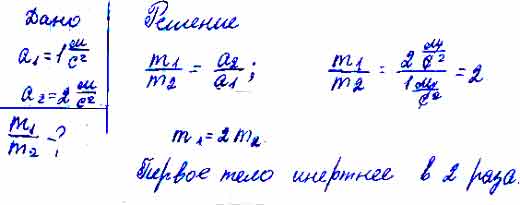 Дано
a₁ = 1 м/с²
a₂ = 2 м/с²
m₁/m₂ - ?
Решение
m₁/m₂ = a₂/a₁;
m₁/m₂ = (2 м/с²)/(1 м/с²) = 2
m₁ = 2 m₂.
Первое тело инертнее в 2 раза.